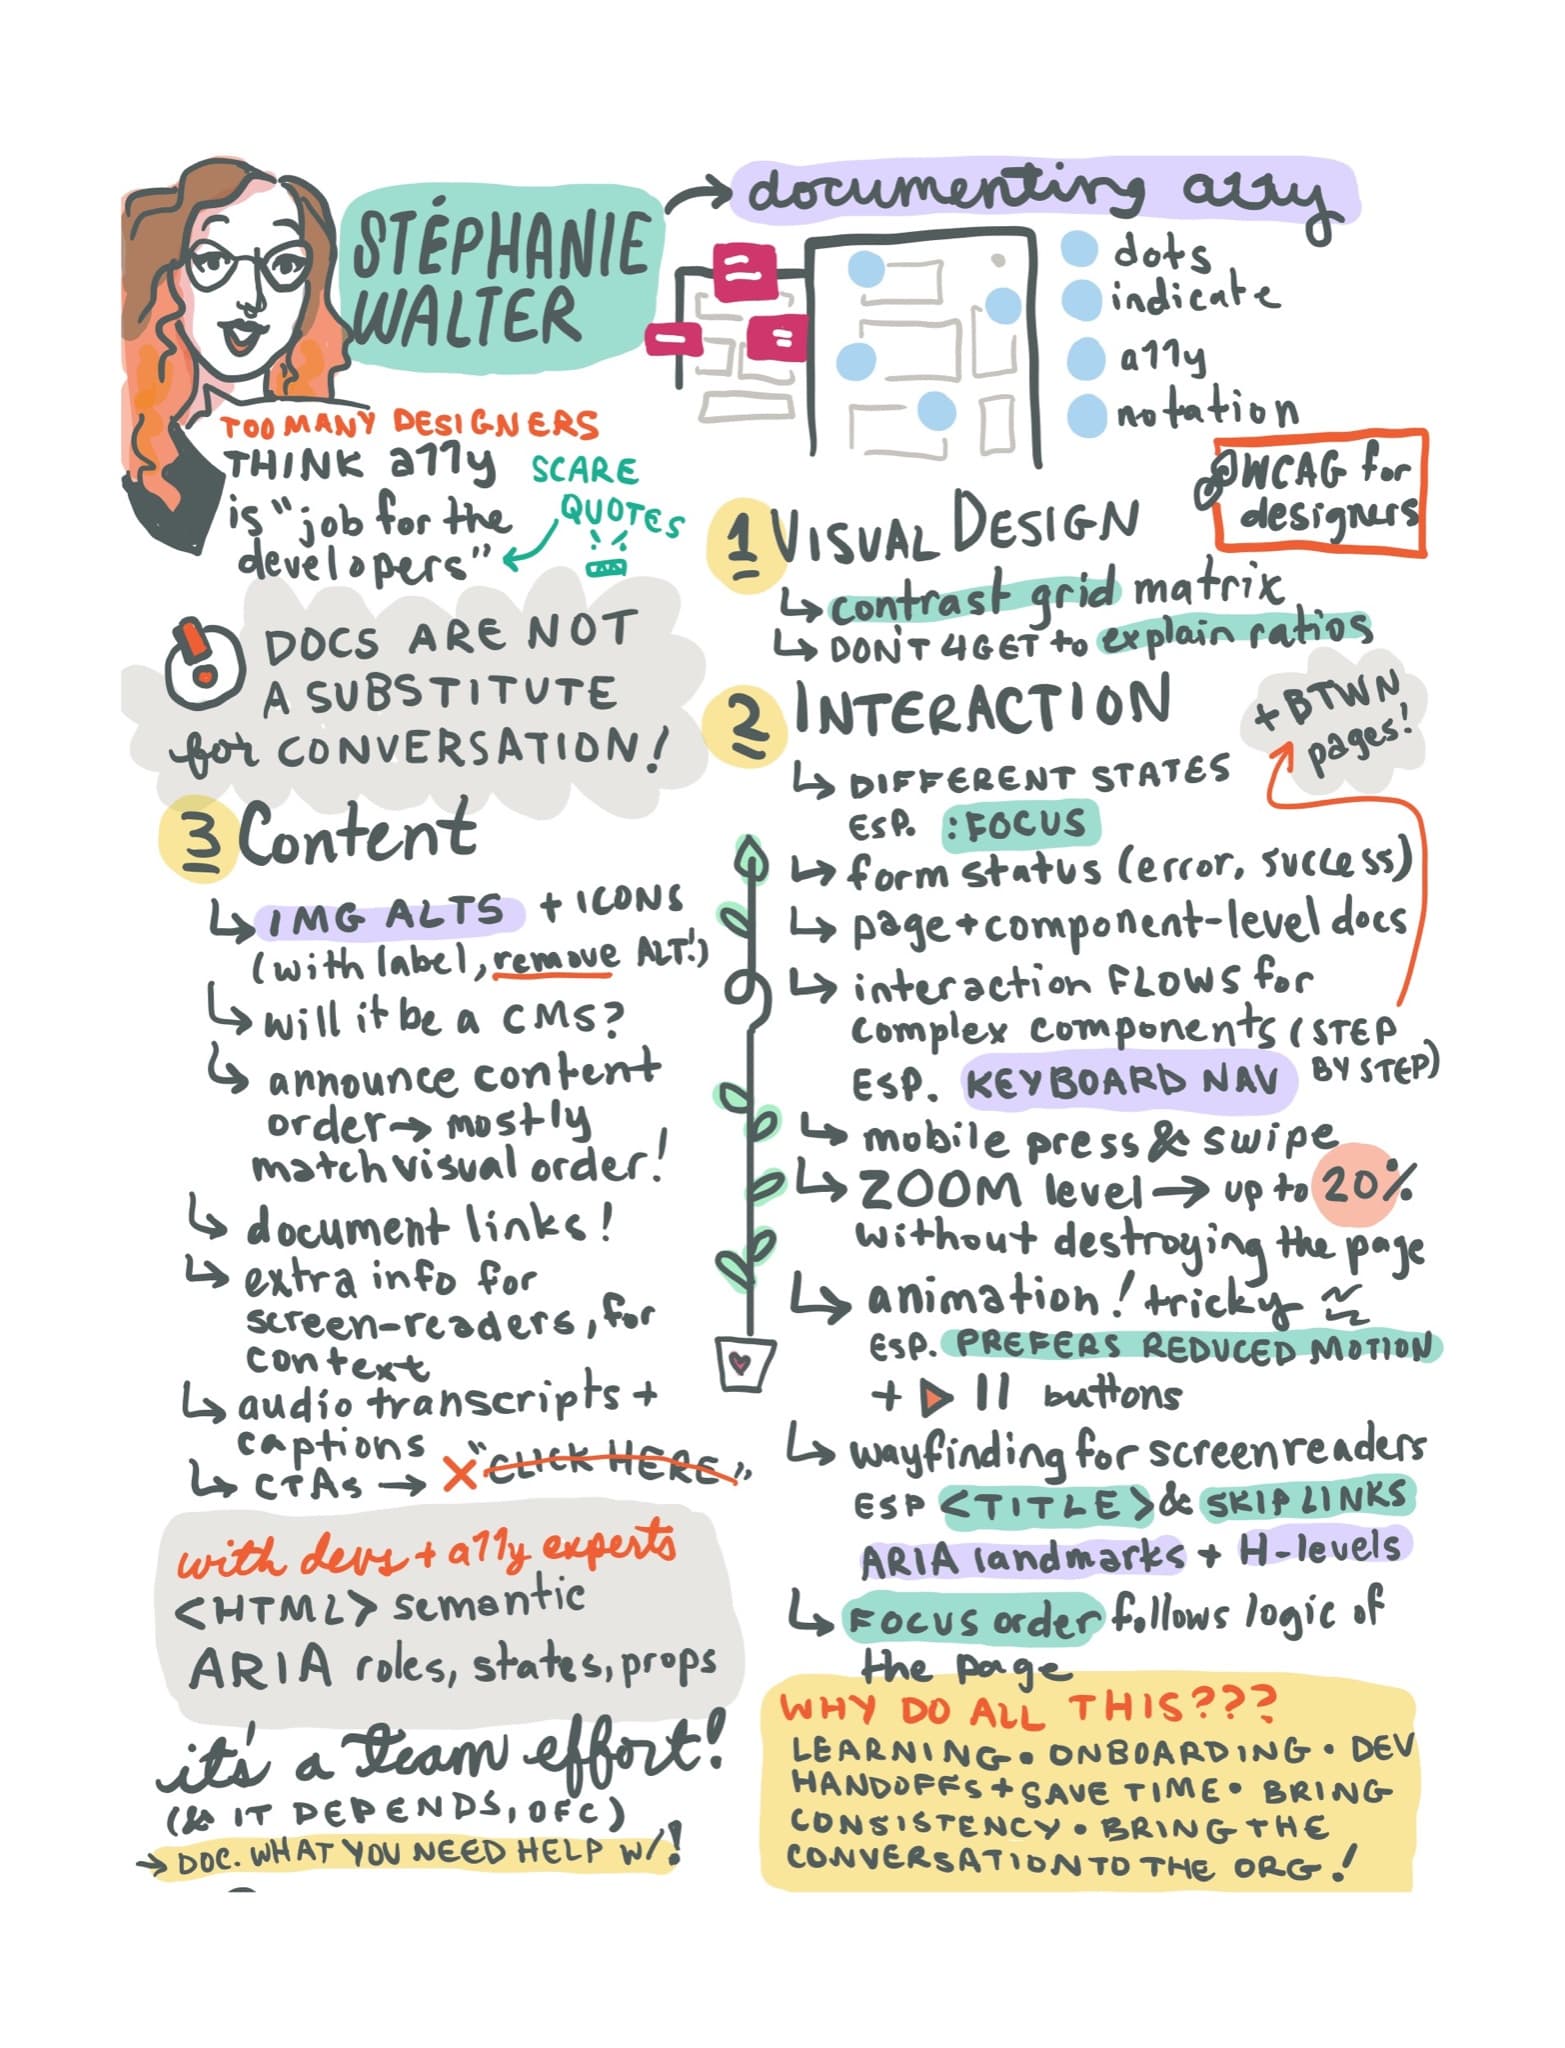 STÉPHANIE
WALTER
documenting a11y
dots
indicate
a11y
notation
TOO MANY DESIGNERS
THINK a11y
is "job for the
developers"
SCARE
QUOTES
@WCAG for
designers
DOCS ARE NOT
A SUBSTITUTE
for CONVERSATION!
1 VISUAL DESIGN
↳ contrast grid matrix
↳ DON'T 4GET to explain ratios
2 INTERACTION
↳ DIFFERENT STATES
ESP. :FOCUS
↳ form status (error, success)
↳ page + component-level docs
↳ interaction FLOWS for
complex components (STEP
BY STEP)
ESP. KEYBOARD NAV
+ BTWN
pages!
↳ mobile press & swipe
↳ ZOOM level → up to 20%
without destroying the page
↳ animation! tricky
ESP. PREFERS REDUCED MOTION
+ ▶ || buttons
↳ wayfinding for screenreaders
ESP <TITLE> & SKIP LINKS
ARIA landmarks + H-levels
↳ FOCUS order follows logic of
the page
3 Content
↳ IMG ALTS + ICONS
(with label, remove ALT!)
↳ will it be a CMS?
↳ announce content
order → mostly
match visual order!
↳ document links!
↳ extra info for
screen-readers, for
context
↳ audio transcripts +
captions
↳ CTAs → X "CLICK HERE"
with devs + a11y experts
<HTML> semantic
ARIA roles, states, props
it's a team effort!
(& IT DEPENDS, OFC)
→ DOC. WHAT YOU NEED HELP W/!
WHY DO ALL THIS???
LEARNING • ONBOARDING • DEV
HANDOFFS + SAVE TIME • BRING
CONSISTENCY • BRING THE
CONVERSATION TO THE ORG!